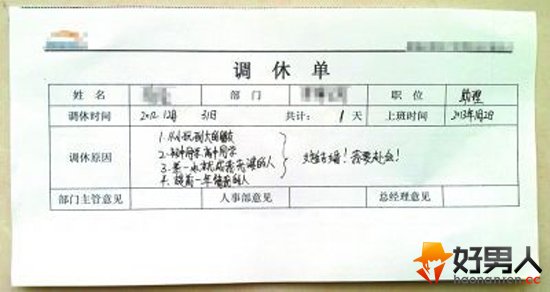 调休单
姓名 部门 职位 助理
调休时间 2012 12月 31日 共计: 1 天 上班时间 2013年1月2日
调休原因
1. 从小玩到大的朋友
2. 初中同学高中同学
3. 差一点就成
4. 的人
结婚!我要赴会!
部门主管意见 人事部意见 总经理意见
好男人
haonanren.cc